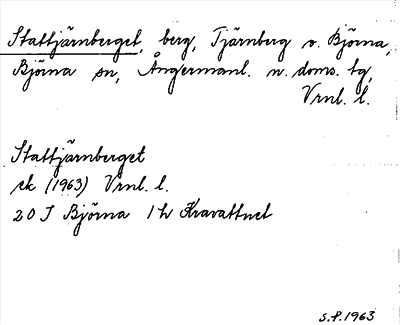 Stattjärnberget, berg, Tjärnberg v. Björna,
Björna sn, Ångermanl. n. doms. tg,
Vrnl. l.
Stattjärnberget
rk (1963) Vrnl. l.
20 I Björna 1 h Kravattnet
S.P. 1963